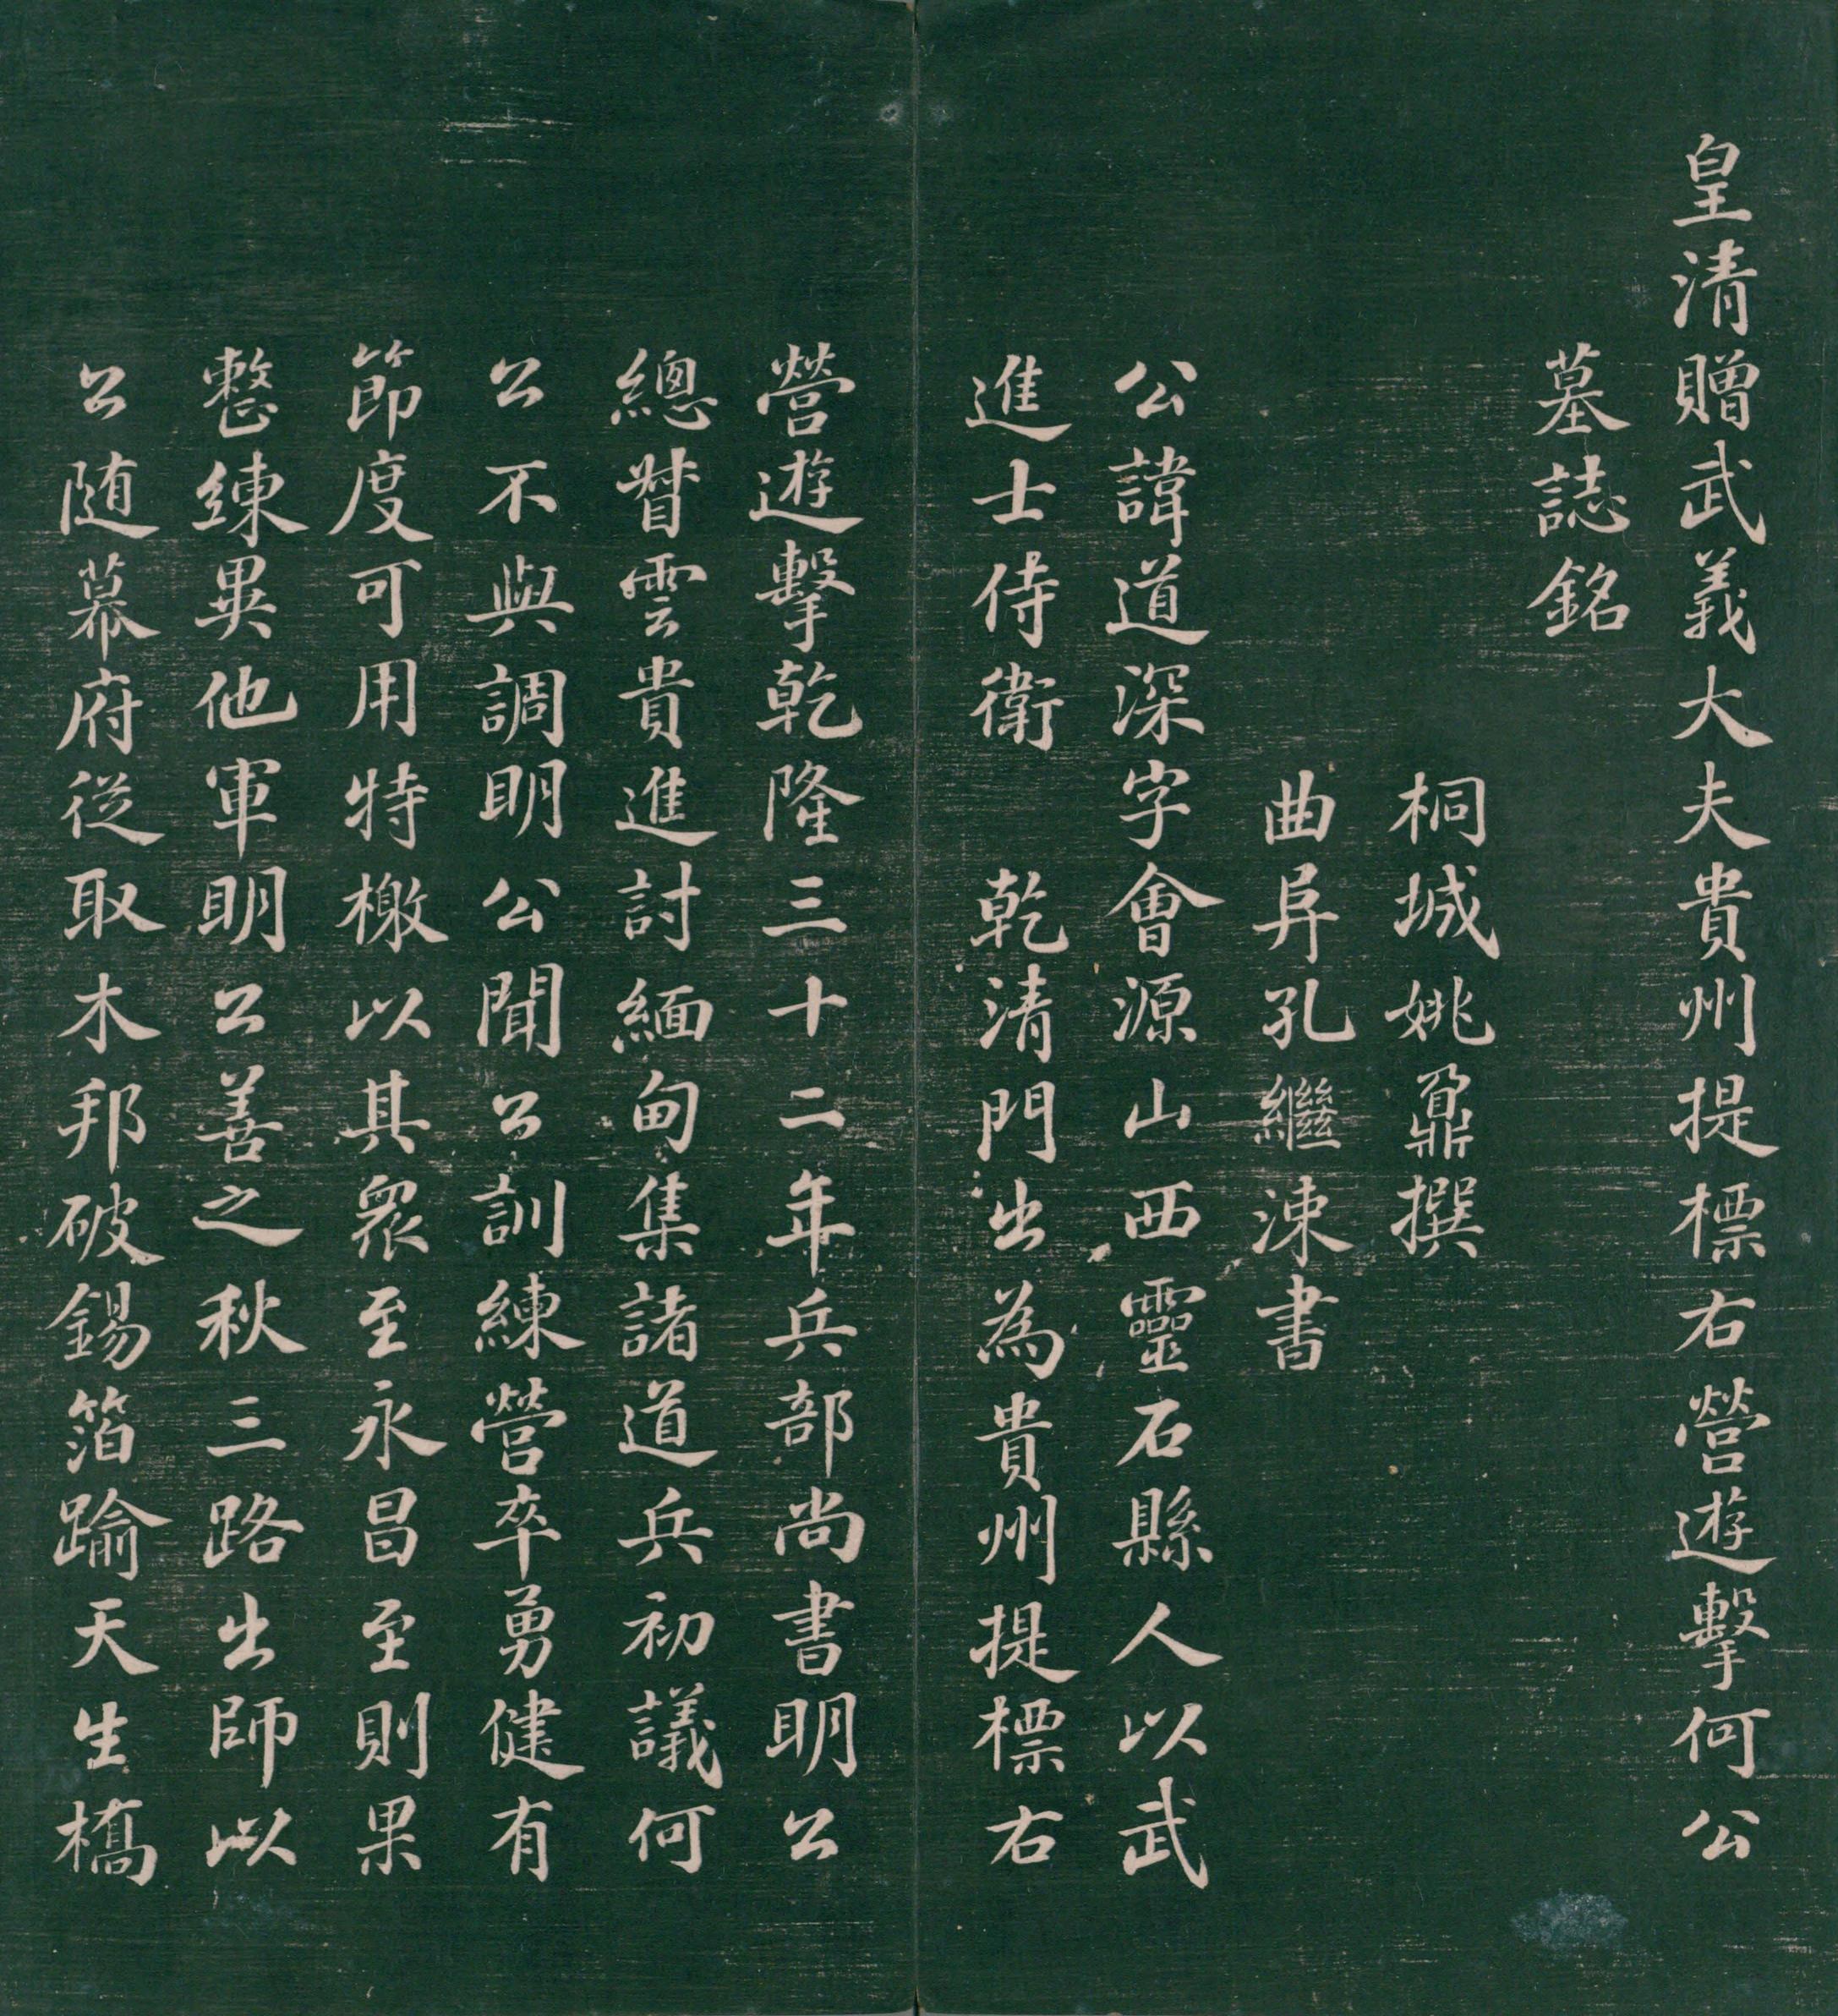 皇清贈武義大夫貴州提標右營遊擊何公
墓誌銘
桐城姚鼐撰
曲阜孔繼涑書
公諱道深字會源山西靈石縣人以武
進士侍衛　乾清門出為貴州提標右
營遊擊乾隆三十二年兵部尚書明公
總督雲貴進討緬甸集諸道兵初議何
公不與調明公聞公訓練營卒勇健有
節度可用特檄以其眾至永昌至則果
整練異他軍明公善之秋三路出師以
公随幕府從取木邦破錫箔踰天生橋